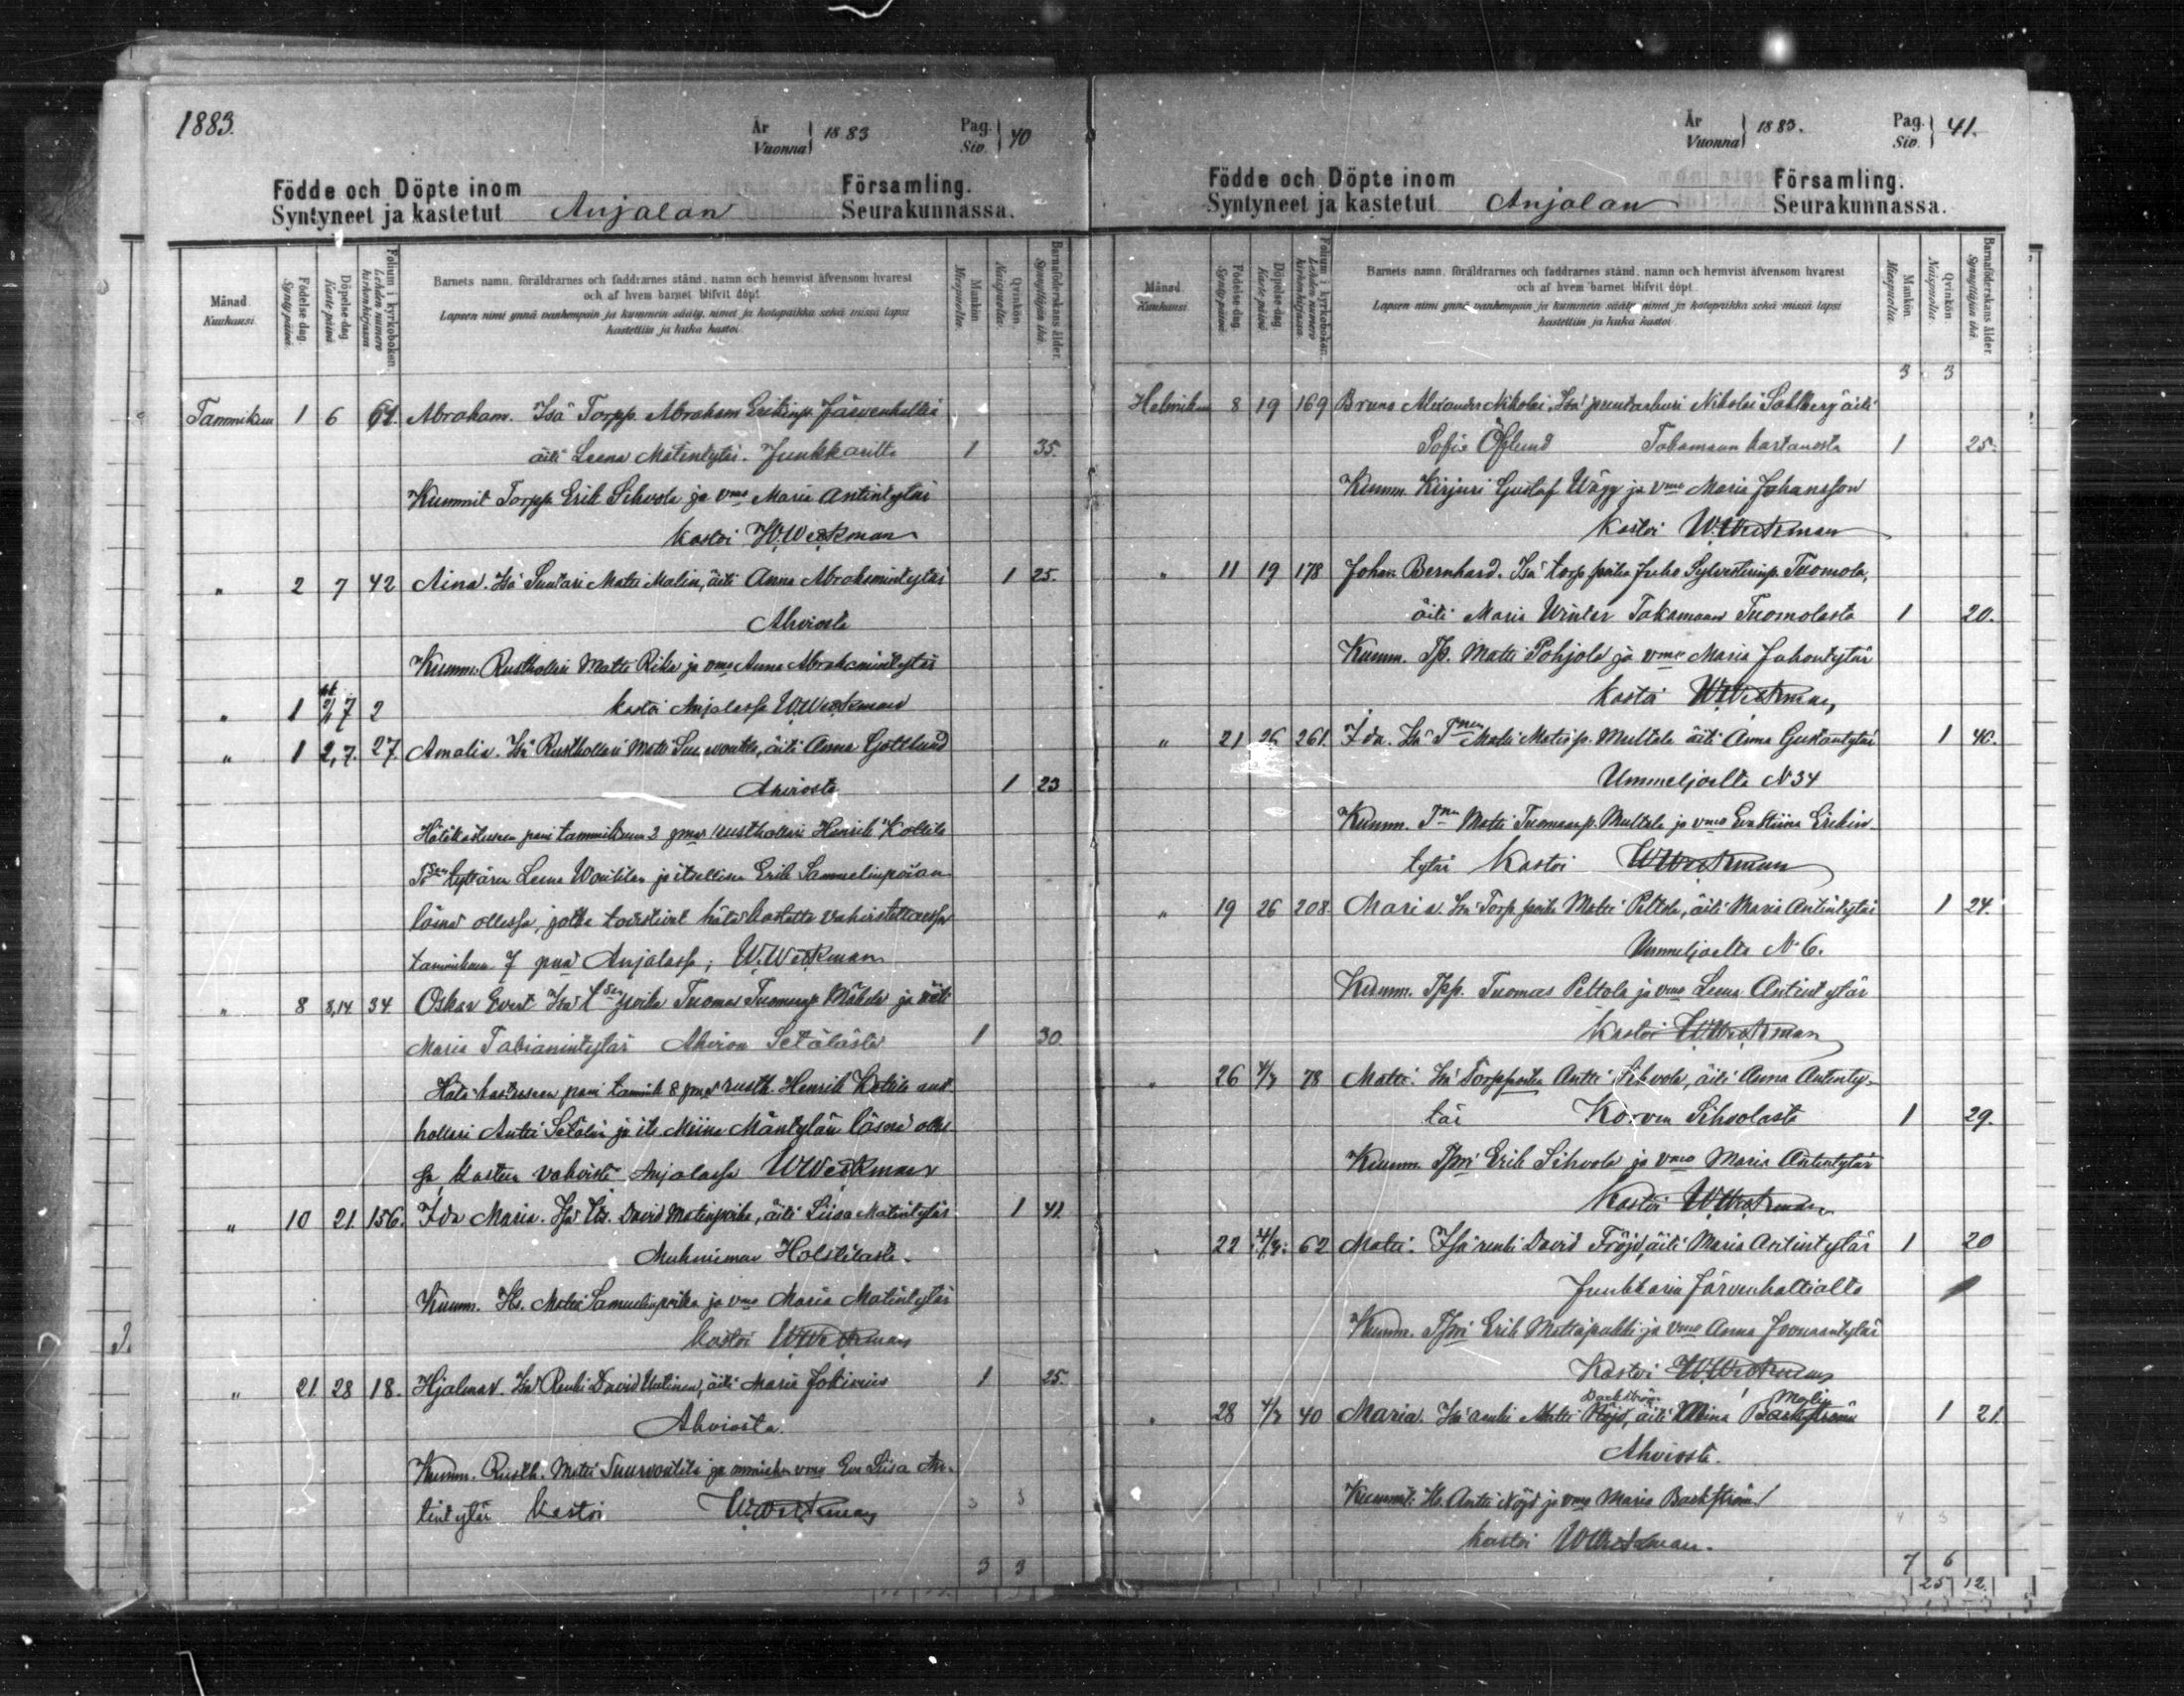 1883.
År
Vuonna
1883
Pag.
Siv.
40
Födde och Döpte inom
Församling.
Syntyneet ja kastetut
Anjalan
Seurakunnassa.
Månad
Kuukausi
Födelse dag.
Synty päivä.
Döpelse dag
Kaste päivä
Folium i kyrkoboken.
Lehden numero kirkonkirjassa
Barnets namn, föräldrarnes och faddrarnes stånd, namn och hemvist äfvensom hvarest
och af hvem barnet blifvit döpt
Lapsen nimi ynnä vanhempain ja kummein sääty, nimet ja kotopaikka sekä missä lapsi
kastettiin ja kuka kastoi
Mankön
Miespuolta.
Qvinkön.
Naispuolta.
Barnaföderskans ålder.
Synnyttäjän ikä.
Tammikuu 1 6 61. Abraham. Isä Torpp. Abraham Erikinp. Järvenhaltia
äiti Leena Matintytär. Junkkarilta 1 35.
Kummit Torpp. Erik Sihvola ja vmo Maria Antintytär
kastoi W.Westerman
" 2 7 42 Aina. Isä Suutari Matti Malin, äiti Anna Abrahamintytär 1 25.
Ahviosta
Kumm. Rusthollari Matti Rika ja vmo Anna Abrahamintytär
" 1 2/7 2 kastoi Anjalassa W.Westerman
" 1 2,7. 27. Amalia. Isä Rusthollari Matti Suurvoutila, äiti Anna Gottlund
Ahviosta 1 23
Hätäkasteeseen pani tammikuun 2 pnä rusthollari Henrik Kollila
tyttären Leena Woutilan ja itsellisen Erik Sammelinpoian
läsnä ollessa, jotka todistivat hätäkastetta vahvistettaessa
tammikuun 7 pnä Anjalassa; W.Westerman
" 8 8,14 34 Oskar Evert Isä poika Tuomas Tuomasp. Mäkelä ja äiti
Maria Fabianintytär Ahvion Setälästä 1 30.
Hätä kasteeseen pani tammik 8 pnä rusth. Henrik Kollila rust
hollari Antti Setälän ja its Miina Mäntylän läsnä olles
sa kasteen vahvisti Anjalassa W.Westerman
" 10 21. 156. Ida Maria. Isä Its. David Matinpoika, äiti Liisa Matintytär 1 41.
Muhniemen Holstilasta.
Kumm. Its. Matti Samuelinpoika ja vmo Maria Matintytär
kastoi W.Westerman
" 21. 28 18. Hjalmar. Isä Renki David Uutinen, äiti Maria Jokimies 1 25.
Ahviosta.
Kumm. Rusth. Matti Suurvoutila ja vmo Eva Liisa An-
tintytär kastoi W.Westerman 3 3
3 3
År
Vuonna
1883.
Pag.
Siv.
41.
Födde och Döpte inom
Församling.
Syntyneet ja kastetut
Anjalan
Seurakunnassa.
Månad
Kuukausi.
Födelse dag.
Synty päivä.
Döpelse dag.
Kaste päivä.
Folium i kyrkoboken.
Lehden numero kirkonkirjassa.
Barnets namn, föräldrarnes och faddrarnes stånd, namn och hemvist äfvensom hvarest
och af hvem barnet blifvit döpt
Lapsen nimi ynnä vanhempain ja kummein sääty, nimet ja kotopaikka sekä missä lapsi
kastettiin ja kuka kastoi
Mankön.
Miespuolta.
Qvinkön
Naispuolta.
Barnaföderskans ålder
Synnyttäjän ikä.
3 3
Helmikuu 8 19 169 Bruno Alexander Nikolai, Isä puutarhuri Nikolai Sahlberg äiti
Sofia Öflund Takamaan kartanosta 1 25.
Kumm. Kirjuri Gustaf Wägg ja vmo Maria Johansson
kastoi W.Westerman
" 11 19 178 Johan Bernhard. Isä torp poika Juho Sylvesterinp. Tuomola,
äiti Maria Winter Takamaan Tuomolasta 1 20.
Kumm. Tp. Matti Pohjola ja vmo Maria Juhontytär
kastoi W.Westerman,
" 21 26 261. Ida. Isä Matti Matinp. Multala äiti Anna Gustantytär 1 40.
Ummeljoelta N 34
Kumm. Matti Tuomaanp. Multala ja vmo Eva Stiina Erikin-
tytär kastoi W.Westerman
" 19 26 208 Maria. Isä Torp poika Matti Peltola, äiti Maria Antintytär 1 24.
Ummeljoelta N 6.
Kumm. Tpp. Tuomas Peltola ja vmo Leena Antintytär
kastoi W.Westerman
" 26 4/3 78 Matti. Isä Torppoika Antti Sihvola, äiti Anna Antinty-
tär Korven Sihvolasta 1 29.
Kumm. Tpri Erik Sihvola ja vmo Maria Antintytär
kastoi W.Westerman
" 22 4/3 62 Matti. Isä renki David Fröjd, äiti Maria Antintytär 1 20
Junkkarin Järvenhaltialta
Kumm. Tpri Erik Mattapukki ja vmo Anna Joonaantytär
kastoi W.Westerman
Backström Malin
" 28 4/3 40 Maria. Isä renki Matti Nöjd, äiti Miina Backström 1 21
Ahviosta.
Kummit: Its. Antti Nöjd ja vmo Maria Backström!
kastoi W.Westerman.
4 3
7 6
25 12.